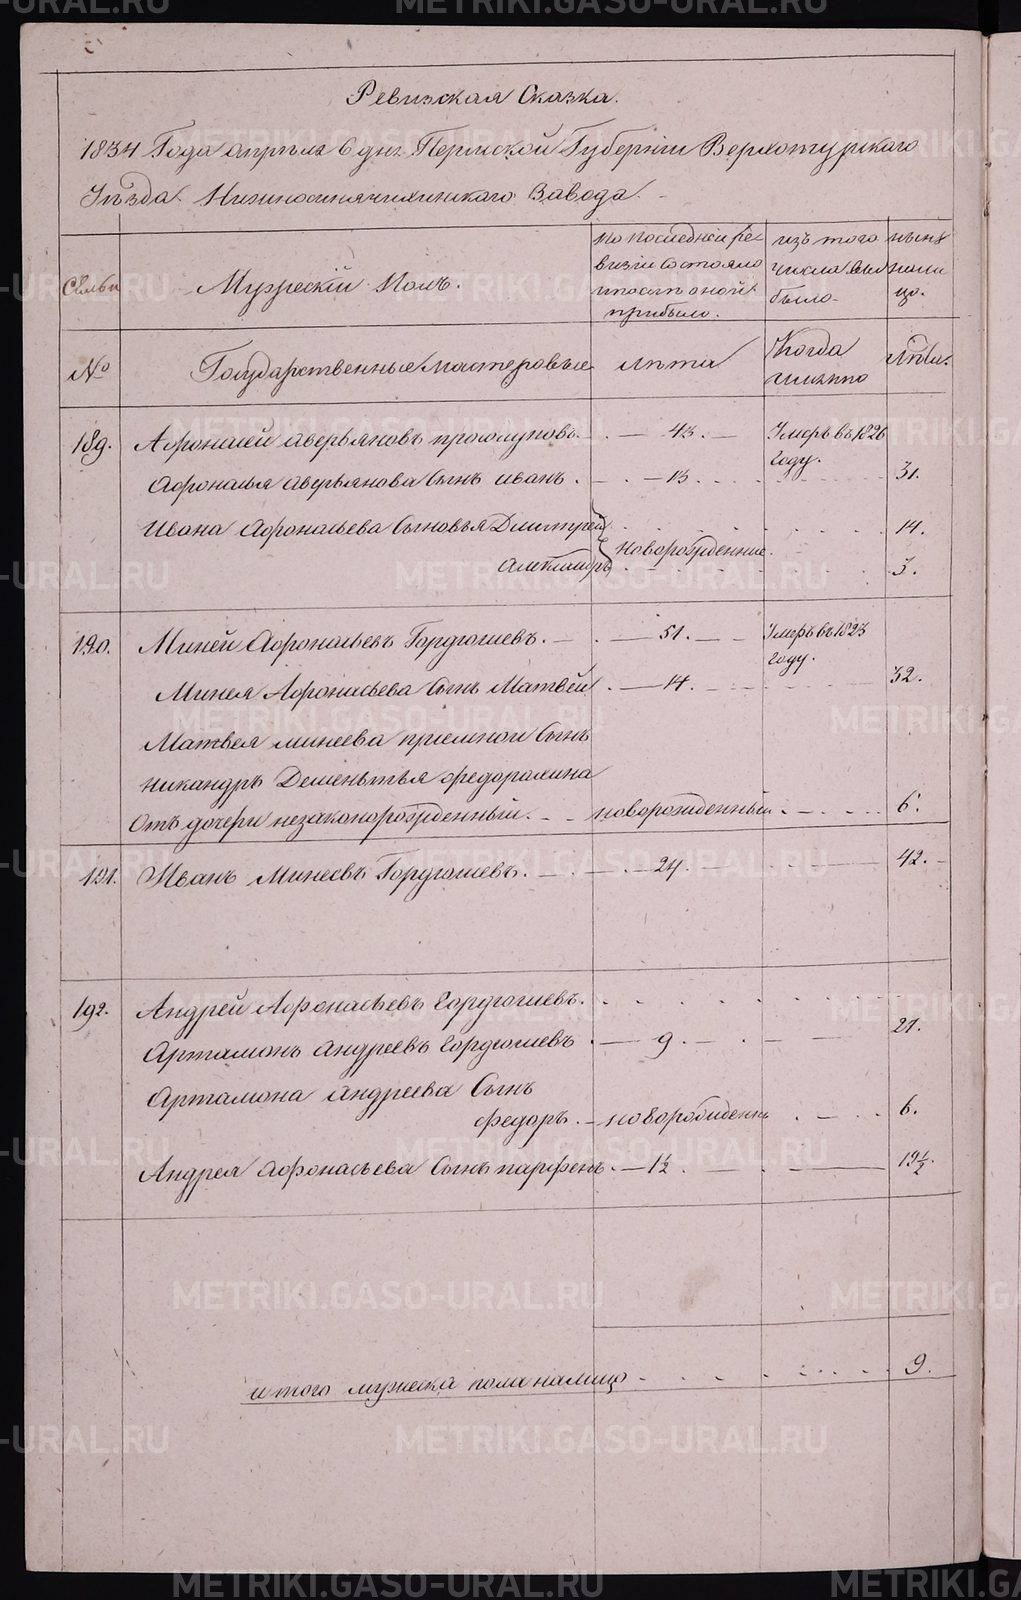 Ревизская Сказка.
1834 Года апреля 6 дня. Пермской Губернiи Верхотурскаго
Уѣзда. Нижносинячихинскаго Завода.
Семьи
Мужескiй Полъ.
по последней ре-
визiи состояло
и после оной
прибыло.
изъ того
числа выбыло.
ныне
на лицо.
№
Государственные мастеровые
лѣта
Когда именно
лѣта.
189.
Афонасей аверьяновъ
43.
Умеръ въ 1826 году.
Афонасья аверьянова Сынъ иванъ.
13.
31.
Ивана Афонасьева Сыновья Дмитрей
14.
новорожденные.
3.
190.
Миней Афонасьевъ Гордюшевъ.
51.
Умеръ въ 1823 году.
Минея Афонасьева Сынъ Матвей
14.
32.
Матвея минеева приемной Сынъ
никандръ Дементья
Отъ дочери незаконорожденный.
новорожденный
6.
191.
Иванъ Минеевъ Гордюшевъ.
24.
42.
192.
Андрей Афонасьевъ Гордюшевъ.
Артамонъ андреевъ Гордюшевъ
9.
27.
Артамона андреева Сынъ
федоръ.
новорожденны
6.
Андрея афонасьева Сынъ парфенъ.
1½.
19½.
итого мужеска пола налицо
9.
METRIKI.GASO-URAL.RU